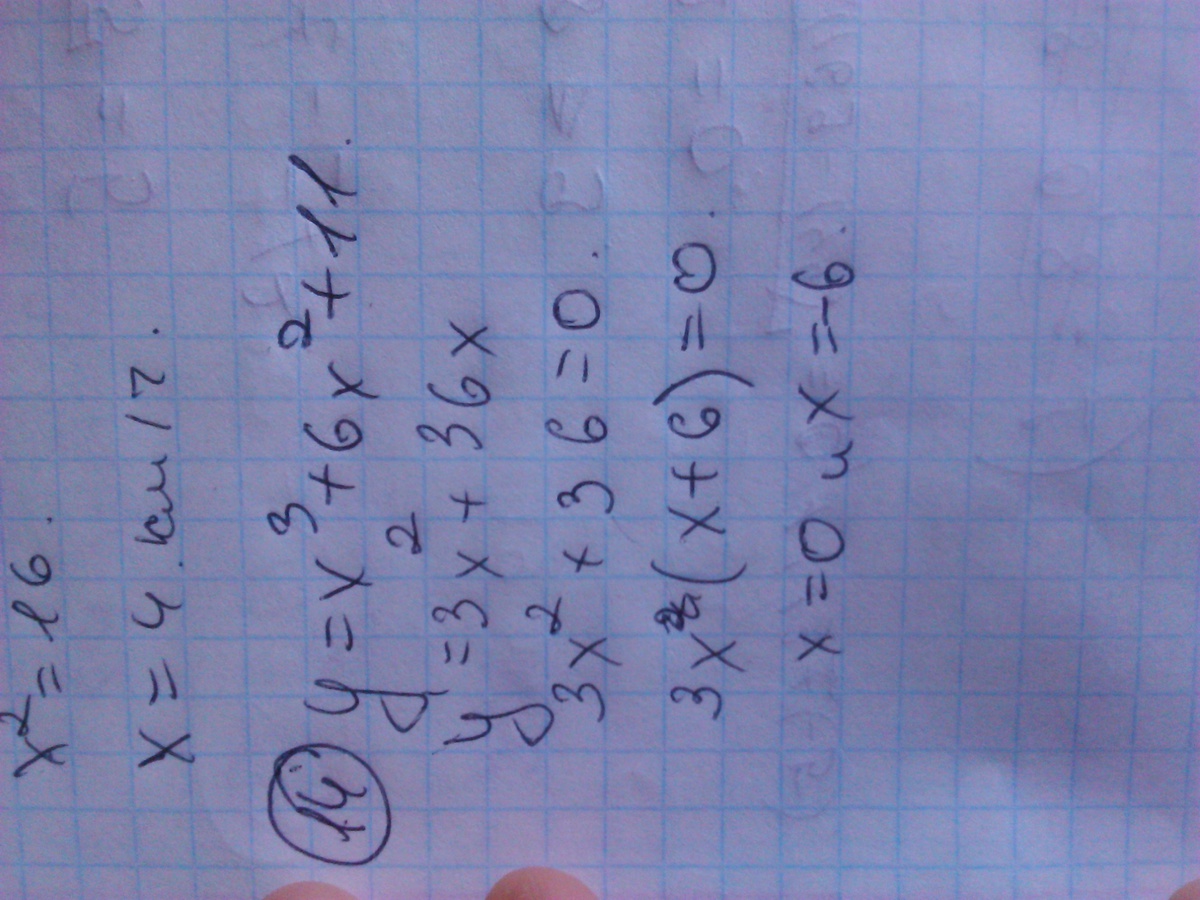 x² = 16.
x = 4 км/ч.
14 y = x³ + 6x² + 11.
y = 3x² + 36x
3x² + 36 = 0.
3x(x+6) = 0.
x = 0 и x = -6.